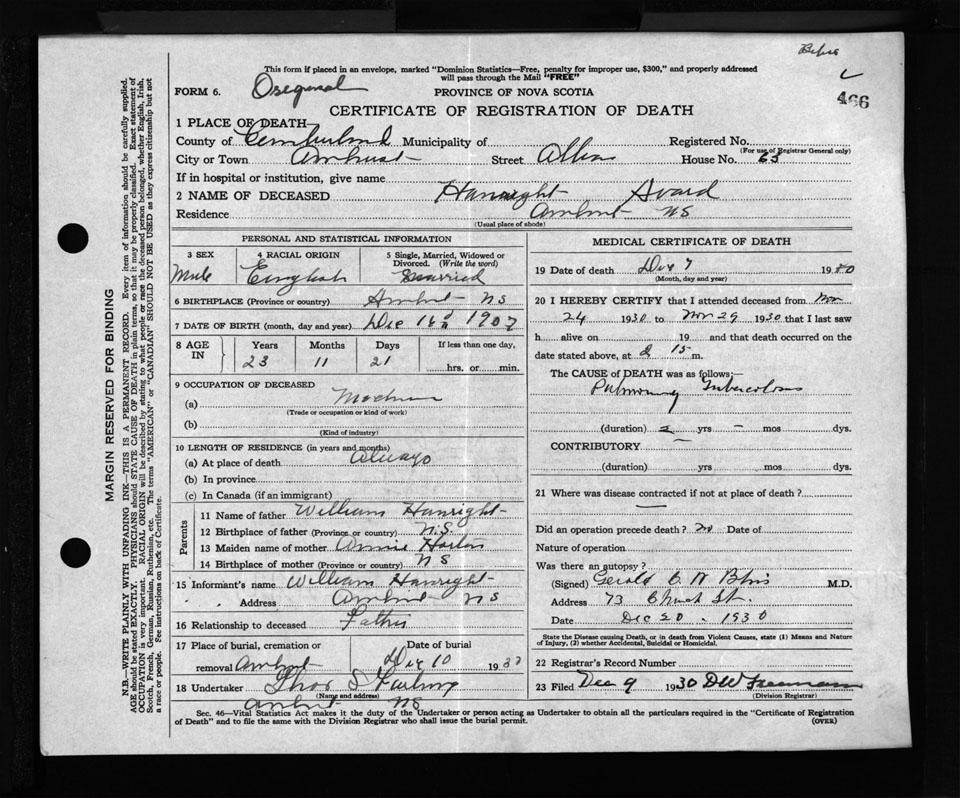 This form if placed in an envelope, marked "Dominion Statistics—Free, penalty for improper use, $300," and properly addressed
will pass through the Mail "FREE"
FORM 6.
PROVINCE OF NOVA SCOTIA
466
CERTIFICATE OF REGISTRATION OF DEATH
1 PLACE OF DEATH
County of Cumberland Municipality of Registered No.
(For use of Registrar General only)
City or Town Amherst Street Albion House No. 65
If in hospital or institution, give name
2 NAME OF DECEASED Hanright Avard
Residence Amherst NS
(Usual place of abode)
PERSONAL AND STATISTICAL INFORMATION
3 SEX 4 RACIAL ORIGIN 5 Single, Married, Widowed or
Divorced. (Write the word)
Male English Married
6 BIRTHPLACE (Province or country) Amherst NS
7 DATE OF BIRTH (month, day and year) Dec 16 1907
8 AGE IN Years Months Days If less than one day,
23 11 21 hrs. or min.
9 OCCUPATION OF DECEASED
(a)
(Trade or occupation or kind of work)
(b)
(Kind of industry)
10 LENGTH OF RESIDENCE (in years and months)
(a) At place of death Always
(b) In province
(c) In Canada (if an immigrant)
Parents
11 Name of father William Hanright
12 Birthplace of father (Province or country) N.S.
13 Maiden name of mother Annie
14 Birthplace of mother (Province or country) NS
15 Informant's name William Hanright
" " Address Amherst NS
16 Relationship to deceased Father
17 Place of burial, cremation or Date of burial
removal Amherst Dec 10 1930
18 Undertaker Thos S Furlong
(Name and address)
Amherst NS
MEDICAL CERTIFICATE OF DEATH
19 Date of death Dec 7 1930
(Month, day and year)
20 I HEREBY CERTIFY that I attended deceased from Nov
24 1930 to Nov 29 1930 that I last saw
h alive on 19 and that death occurred on the
date stated above, at 2 15 m.
The CAUSE of DEATH was as follows:
Pulmonary Tuberculosis
(duration) 2 yrs – mos dys.
CONTRIBUTORY —
(duration) yrs mos dys.
21 Where was disease contracted if not at place of death?
—
Did an operation precede death? no Date of
Nature of operation
Was there an autopsy?
(Signed) Gerald C W Bliss M.D.
Address 73 Church St.
Date Dec 20 . 1930
State the Disease causing Death, or in death from Violent Causes, state (1) Means and Nature
of Injury, (2) whether Accidental, Suicidal or Homicidal.
22 Registrar's Record Number
23 Filed Dec 9 1930 DW Freeman
(Division Registrar)
Sec. 46—Vital Statistics Act makes it the duty of the Undertaker or person acting as Undertaker to obtain all the particulars required in the "Certificate of Registration
of Death" and to file the same with the Division Registrar who shall issue the burial permit. (OVER)
MARGIN RESERVED FOR BINDING
N.B.—WRITE PLAINLY WITH UNFADING INK—THIS IS A PERMANENT RECORD. Every item of information should be carefully supplied.
AGE should be stated EXACTLY. PHYSICIANS should STATE CAUSE OF DEATH in plain terms, so that it may be properly classified. Exact statement of
OCCUPATION is very important. RACIAL ORIGIN will be described by stating to what people or race the deceased person belonged, whether English, Irish,
Scotch, French, German, Russian, Ruthenian, etc. The terms "AMERICAN" or "CANADIAN" SHOULD NOT BE USED as they express citizenship but not
a race or people. See instructions on back of Certificate.